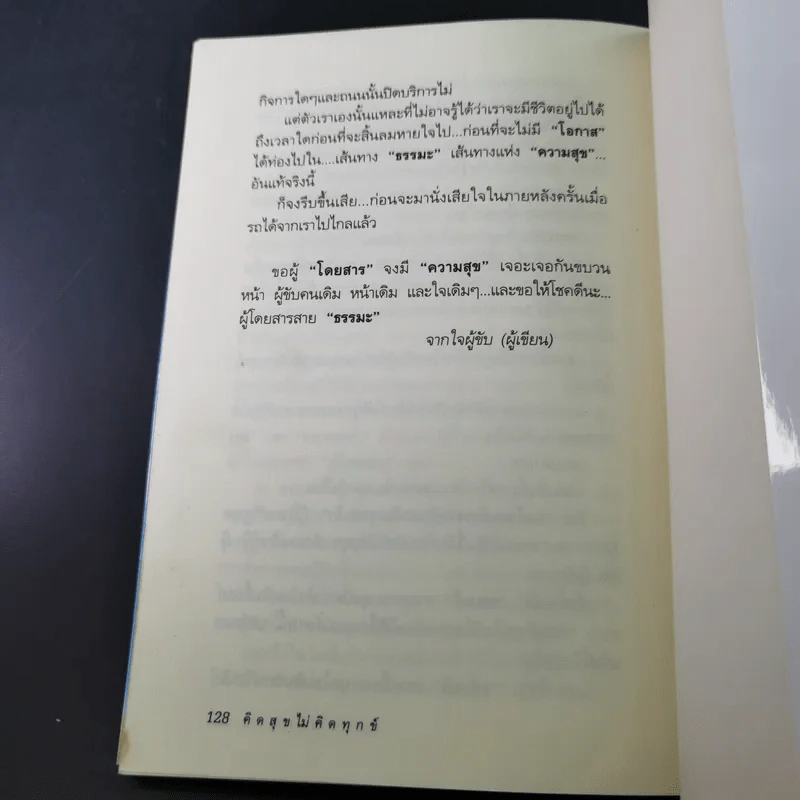 กิจการใดๆและถนนนั้นปิดบริการไม่
แต่ตัวเราเองนั้นแหละที่ไม่อาจรู้ได้ว่าเราจะมีชีวิตอยู่ไปได้
ถึงเวลาใดก่อนที่จะสิ้นลมหายใจไป...ก่อนที่จะไม่มี “โอกาส”
ได้ท่องไปใน....เส้นทาง “ธรรมะ” เส้นทางแห่ง “ความสุข”...
อันแท้จริงนี้
ก็จงรีบขึ้นเสีย...ก่อนจะมานั่งเสียใจในภายหลังครั้นเมื่อ
รถได้จากเราไปไกลแล้ว
ขอผู้ “โดยสาร” จงมี “ความสุข” เจอะเจอกันขบวน
หน้า ผู้ขับคนเดิม หน้าเดิม และใจเดิมๆ...และขอให้โชคดีนะ...
ผู้โดยสารสาย “ธรรมะ”
จากใจผู้ขับ (ผู้เขียน)
128 คิดสุขไม่คิดทุกข์